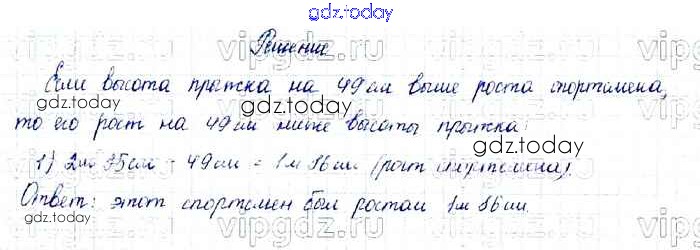 gdz.today
Решение
Если высота прыжка на 49 см выше роста спортсмена,
gdz.today
то его рост на 49 см ниже высоты прыжка
1) 2м 35см - 49см = 1м 86см (рост спортсмена).
gdz.today
Ответ: этот спортсмен был ростом 1м 86см.
gdz.today
vipgdz.ru